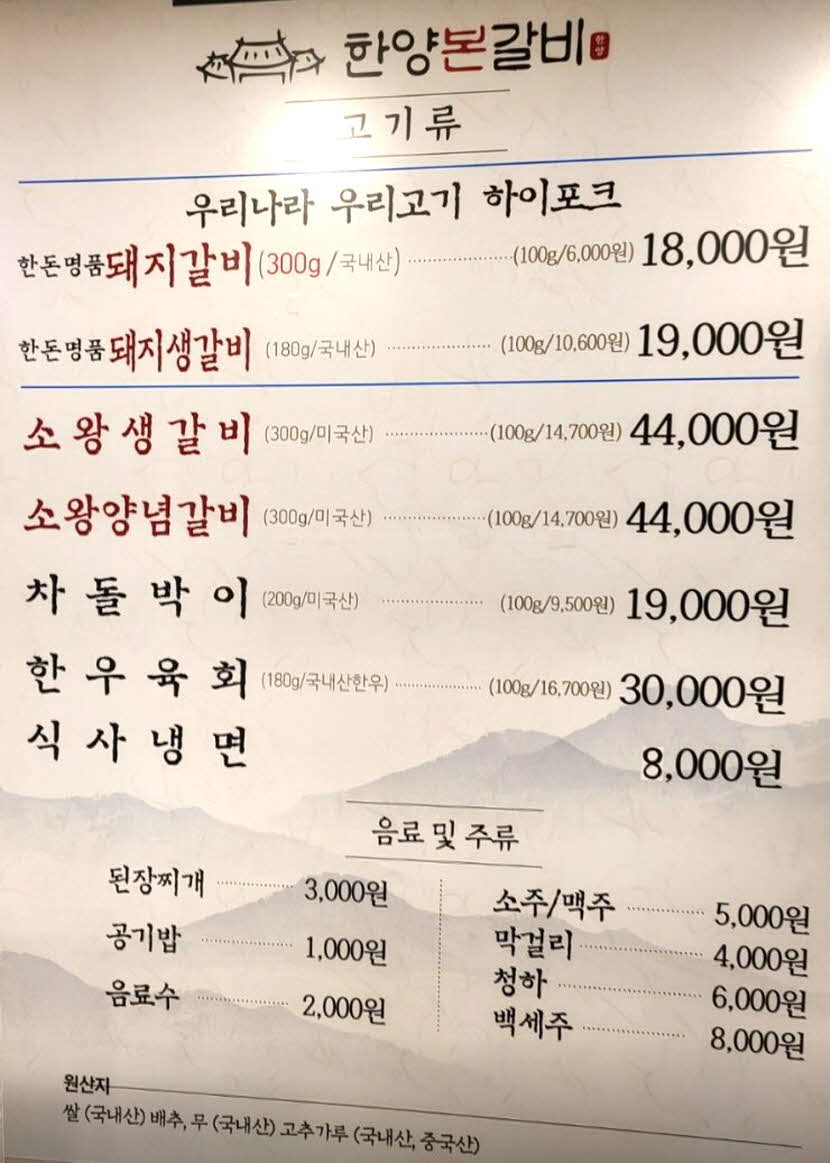 한양본갈비 한양
고기류
우리나라 우리고기 하이포크
한돈명품돼지갈비(300g/국내산) (100g/6,000원) 18,000원
한돈명품돼지생갈비 (180g/국내산) (100g/10,600원) 19,000원
소왕생갈비 (300g/미국산) (100g/14,700원) 44,000원
소왕양념갈비 (300g/미국산) (100g/14,700원) 44,000원
차돌박이 (200g/미국산) (100g/9,500원) 19,000원
한우육회 (180g/국내산한우) (100g/16,700원) 30,000원
식사냉면 8,000원
음료 및 주류
된장찌개 3,000원
공기밥 1,000원
음료수 2,000원
소주/맥주 5,000원
막걸리 4,000원
청하 6,000원
백세주 8,000원
원산지
쌀 (국내산) 배추, 무 (국내산) 고추가루 (국내산, 중국산)